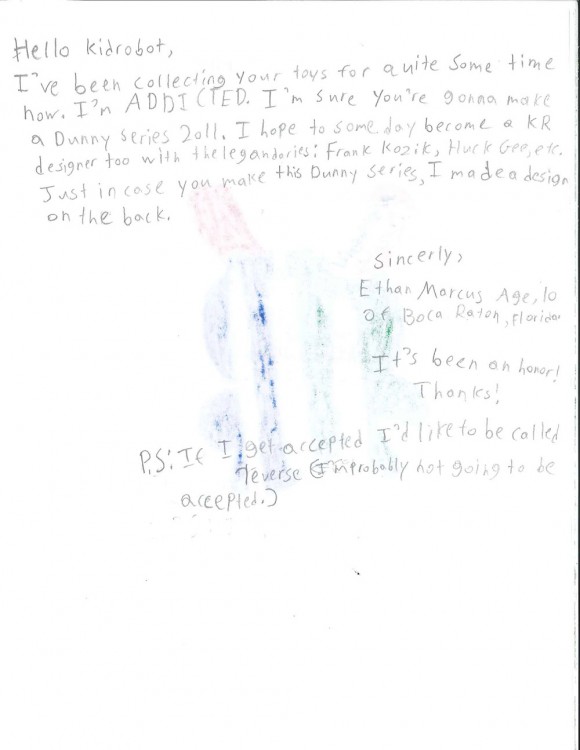 Hello kidrobot,
I've been collecting your toys for quite some time
now. I'm ADDICTED. I'm sure you're gonna make
a Dunny series 2011. I hope to some day become a KR
designer too with the legandories: Frank Kozik, Huck Gee, etc.
Just in case you make this Dunny series, I made a design
on the back.
Sincerly,
Ethan Marcus Age, 10
of Boca Raton, Florida
It's been an honor!
Thanks!
P.S: If I get accepted I'd like to be called
7everse (I'm probably not going to be
accepted.)